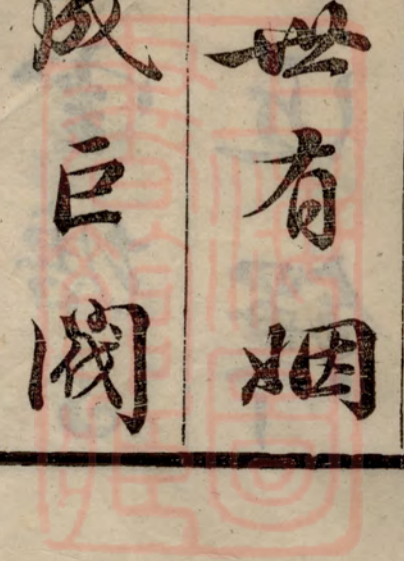 世有姻
成巨閥